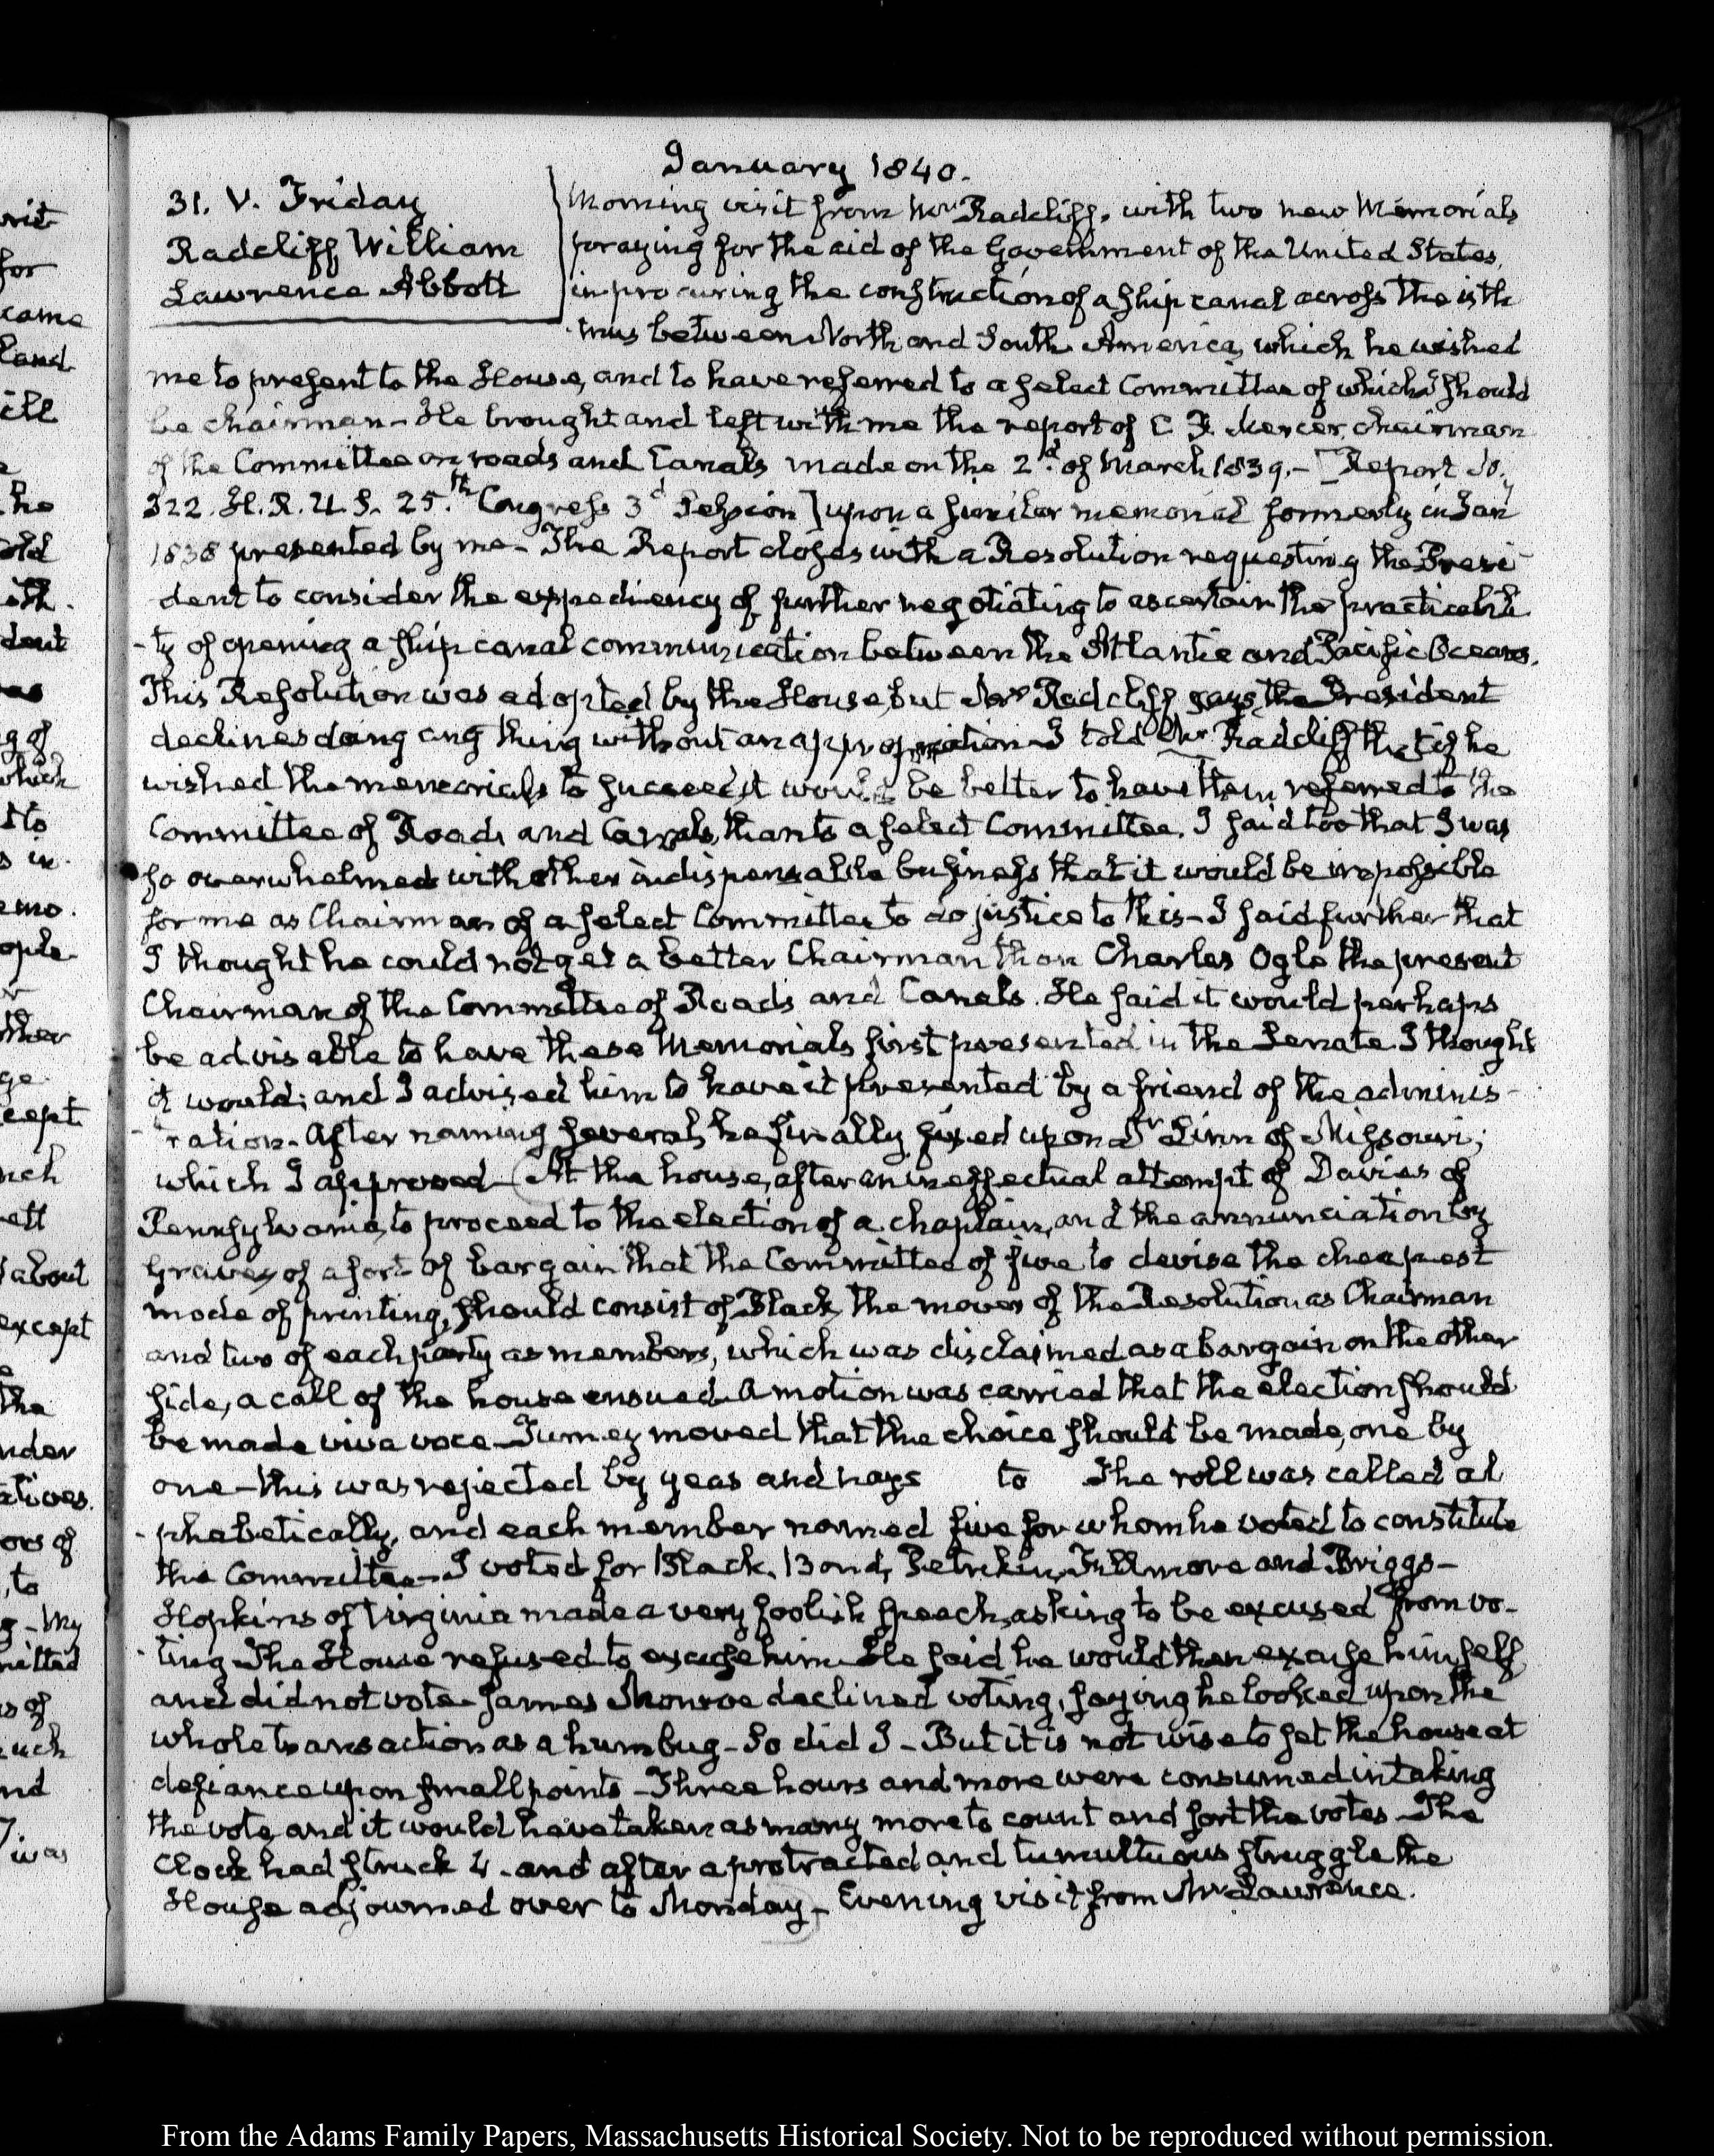 January 1840.
31. V. Friday
Radcliff, William
Lawrence Abbott
Morning visit from Mr Radcliff, with two new Memorials
praying for the aid of the Government of the United States,
in procuring the construction of a ship canal across the isth
-mus between North and South America, which he wished
me to present to the House, and to have referred to a select Committee of which I should
be chairman - He brought and left with me the report of C. F. Mercer, chairman
of the Committee on roads and Canals made on the 2d. of March 1839. - [Report No.
322. H.R. U.S. 25.th Congress 3d Session] upon a similar memorial formerly in Jan
1838 presented by me - The Report closes with a Resolution requesting the Presi-
dent to consider the expediency of further negotiating to ascertain the practicabili
-ty of opening a ship canal communication between the Atlantic and Pacific Oceans.
This Resolution was adopted by the House, but Mr Radcliff says, the President
declines doing any thing without an appropriation - I told Mr Radcliff that if he
wished the memorials to succeed, it would be better to have them referred to the
Committee of Roads and Canals, than to a select Committee. I said too that I was
so overwhelmed with other indispensable business that it would be impossible
for me as Chairman of a select Committee to do justice to this - I said further that
I thought he could not get a better Chairman than Charles Ogle the present
Chairman of the Committee of Roads and Canals. He said it would perhaps
be advisable to have these Memorials first presented in the Senate. I thought
it would; and I advised him to have it presented by a friend of the adminis-
-tration - After naming several, he finally fixed upon Dr Linn of Missouri;
which I approved - At the house, after an ineffectual attempt of Davies of
Pennsylvania, to proceed to the election of a chaplain, and the annunciation by
Graves of a sort of bargain that the Committee of five to devise the cheapest
mode of printing, should consist of Black, the mover of the Resolution as Chairman
and two of each party as members, which was disclaimed as a bargain on the other
side, a call of the house ensued. A motion was carried that the election should
be made viva voce - Turney moved that the choice should be made, one by
one - this was rejected by yeas and nays to The roll was called al
-phabetically, and each member named five for whom he voted to constitute
the Committee - I voted for Black, Bond, Petrikin, Fillmore and Briggs -
Hopkins of Virginia made a very foolish speech, asking to be excused from vo-
-ting - The House refused to excuse him - He said he would then excuse himself,
and did not vote - James Monroe declined voting, saying he looked upon the
whole transaction as a humbug - So did I - But it is not wise to set the house at
defiance upon small points - Three hours and more were consumed in taking
the vote, and it would have taken as many more to count and sort the votes - The
Clock had struck 4. and after a protracted and tumultuous struggle the
House adjourned over to Monday - Evening visit from Mr Lawrence.
From the Adams Family Papers, Massachusetts Historical Society. Not to be reproduced without permission.